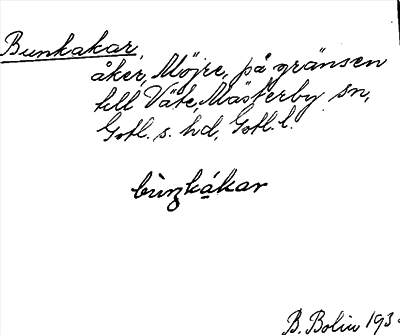 Bunkakar,
åker, Möjre, på gränsen
till Väte, Mästerby sn,
Gotl. s. hd, Gotl. l.
bùŋkákar
B. Bolin 193